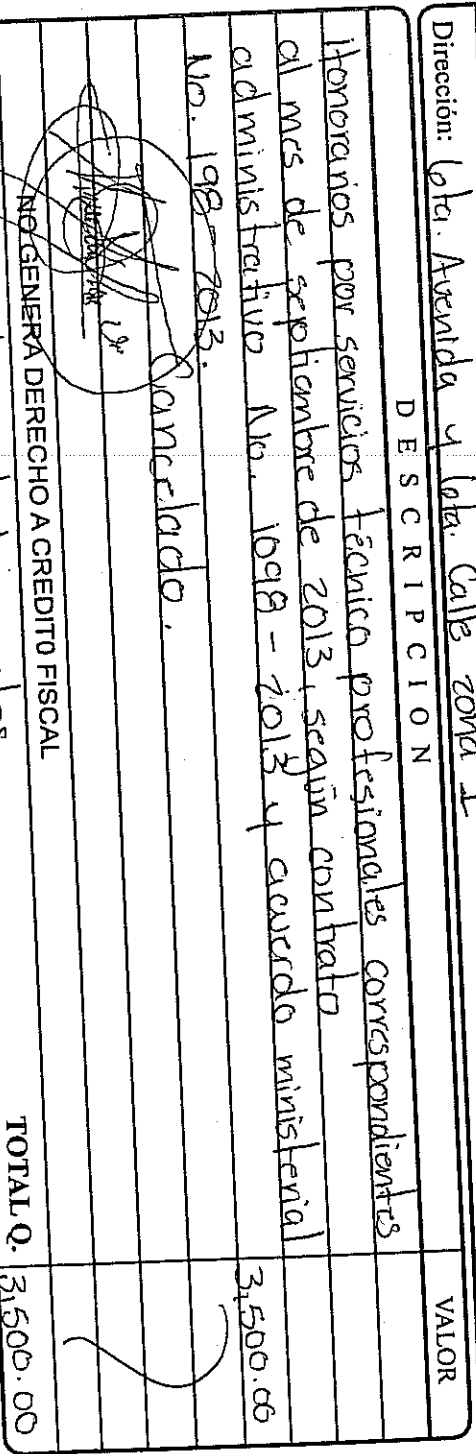 Dirección: 6ta. Avenida y 6ta. Calle zona 1
DESCRIPCION
VALOR
Honorarios por servicios técnico profesionales correspondientes
al mes de septiembre de 2013, según contrato
administrativo No. 1098-2013 y acuerdo ministerial
3,500.00
No. 198-2013.
Cancelado.
NO GENERA DERECHO A CREDITO FISCAL
TOTAL Q. 3,500.00